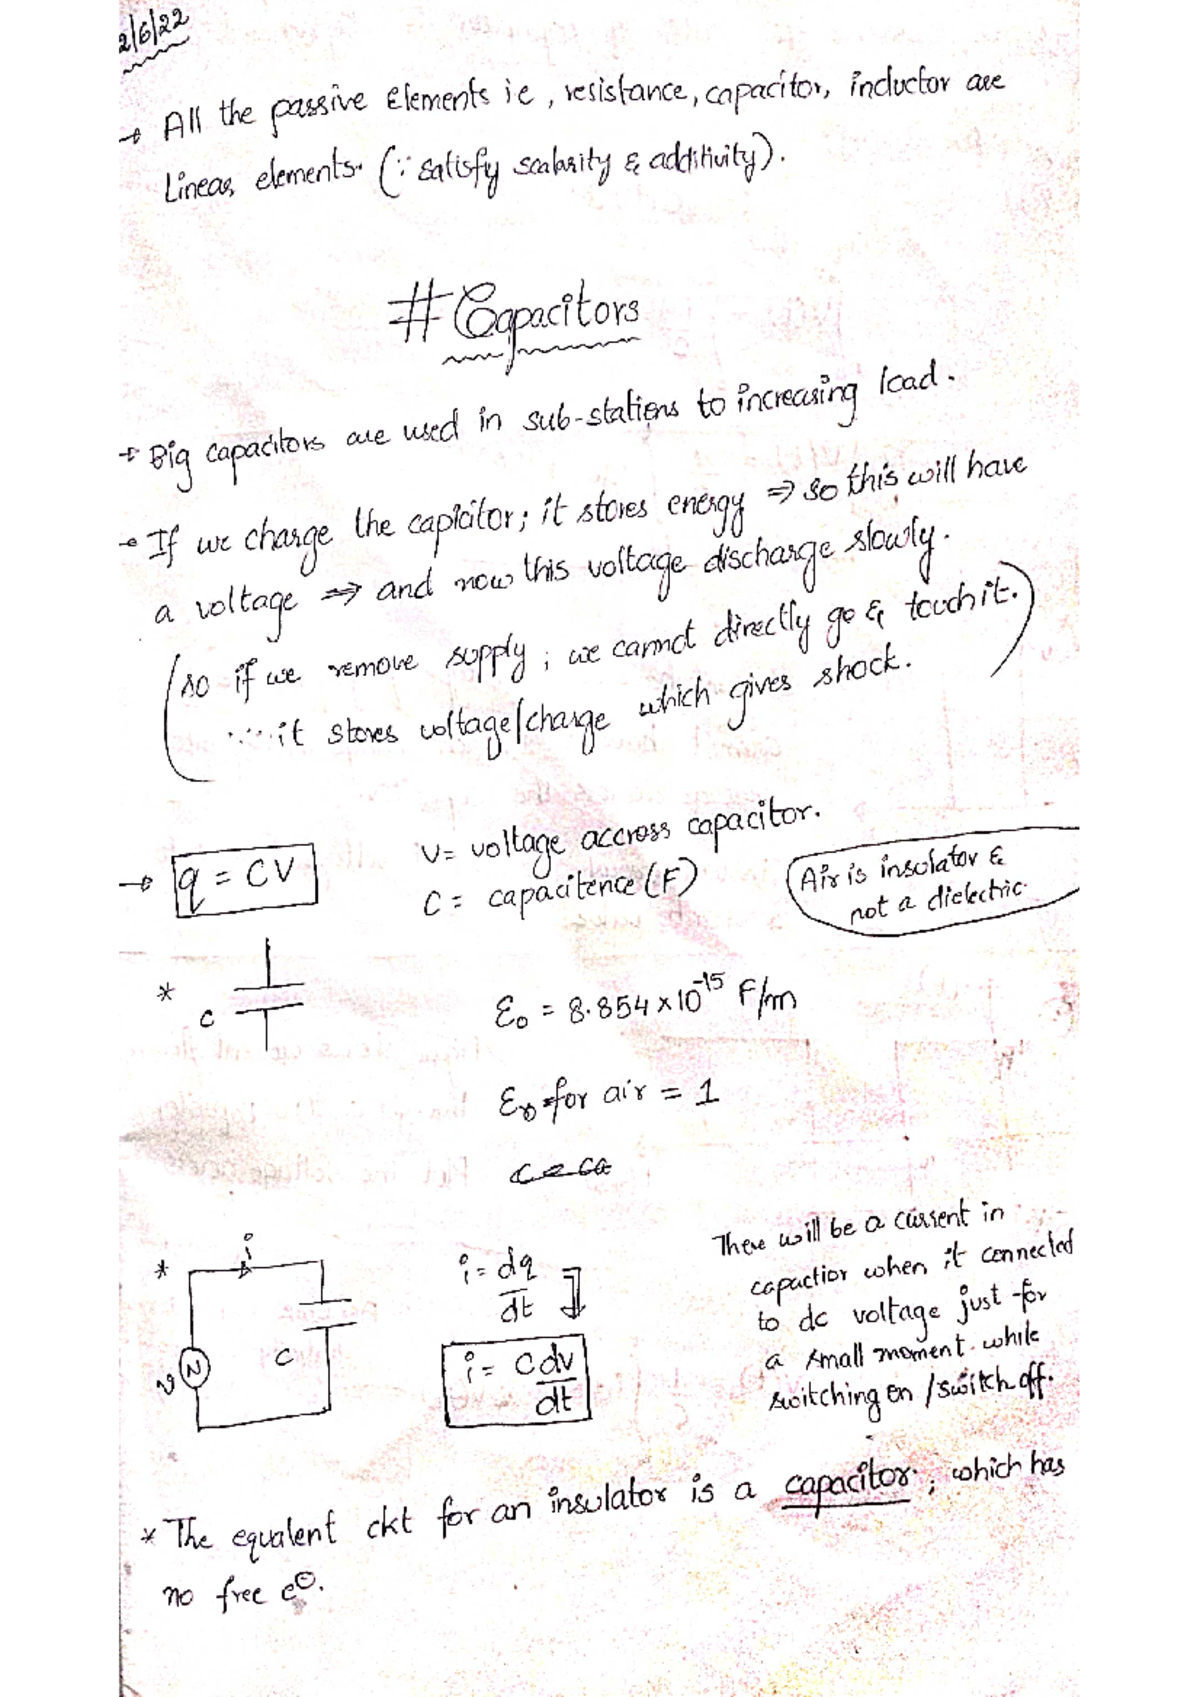 2/6/22
→ All the passive Elements ie, resistance, capacitor, inductor are
Linear elements. (∵ satisfy scalarity & additivity).
# Capacitors
→ Big capacitors are used in sub-stations to increasing load.
→ If we charge the capicitor; it stores energy ⇒ so this will have
a voltage ⇒ and now this voltage discharge slowly.
(so if we remove supply; we cannot directly go & touch it.
∵ it stores voltage/charge which gives shock.)
→ q = CV
V = voltage accross capacitor.
C = capacitence (F)
Air is insolator &
not a dielectric.
* C
ε₀ = 8.854 × 10⁻¹⁵ F/m
εr for air = 1
* i
v
C
i = dq/dt
i = C dv/dt
There will be a current in
capactior when it connected
to dc voltage just for
a small moment while
switching on / switch off.
* The equalent ckt for an insulator is a capacitor; which has
no free e⊖.